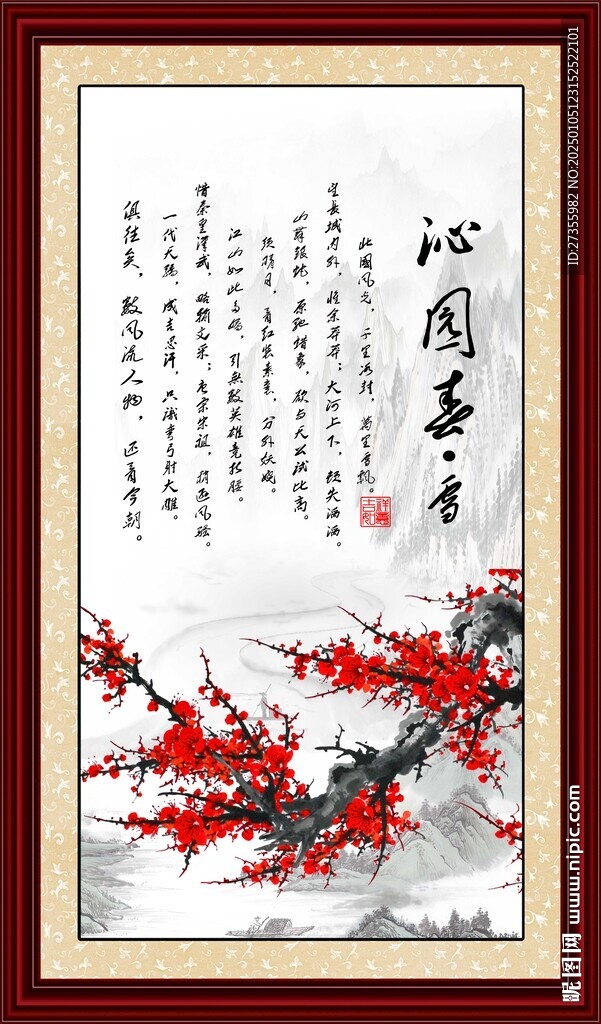 沁园春·雪
北國风光，千里冰封，萬里雪飘。
望长城内外，惟余莽莽；大河上下，顿失滔滔。
山舞银蛇，原驰蜡象，欲与天公试比高。
须晴日，看红装素裹，分外妖娆。
江山如此多娇，引無數英雄竞折腰。
惜秦皇漢武，略输文采；唐宗宋祖，稍逊风骚。
一代天骄，成吉思汗，只識弯弓射大雕。
俱往矣，數风流人物，还看今朝。
ID:27355982 NO:20250105123152522101
昵图网 www.nipic.com